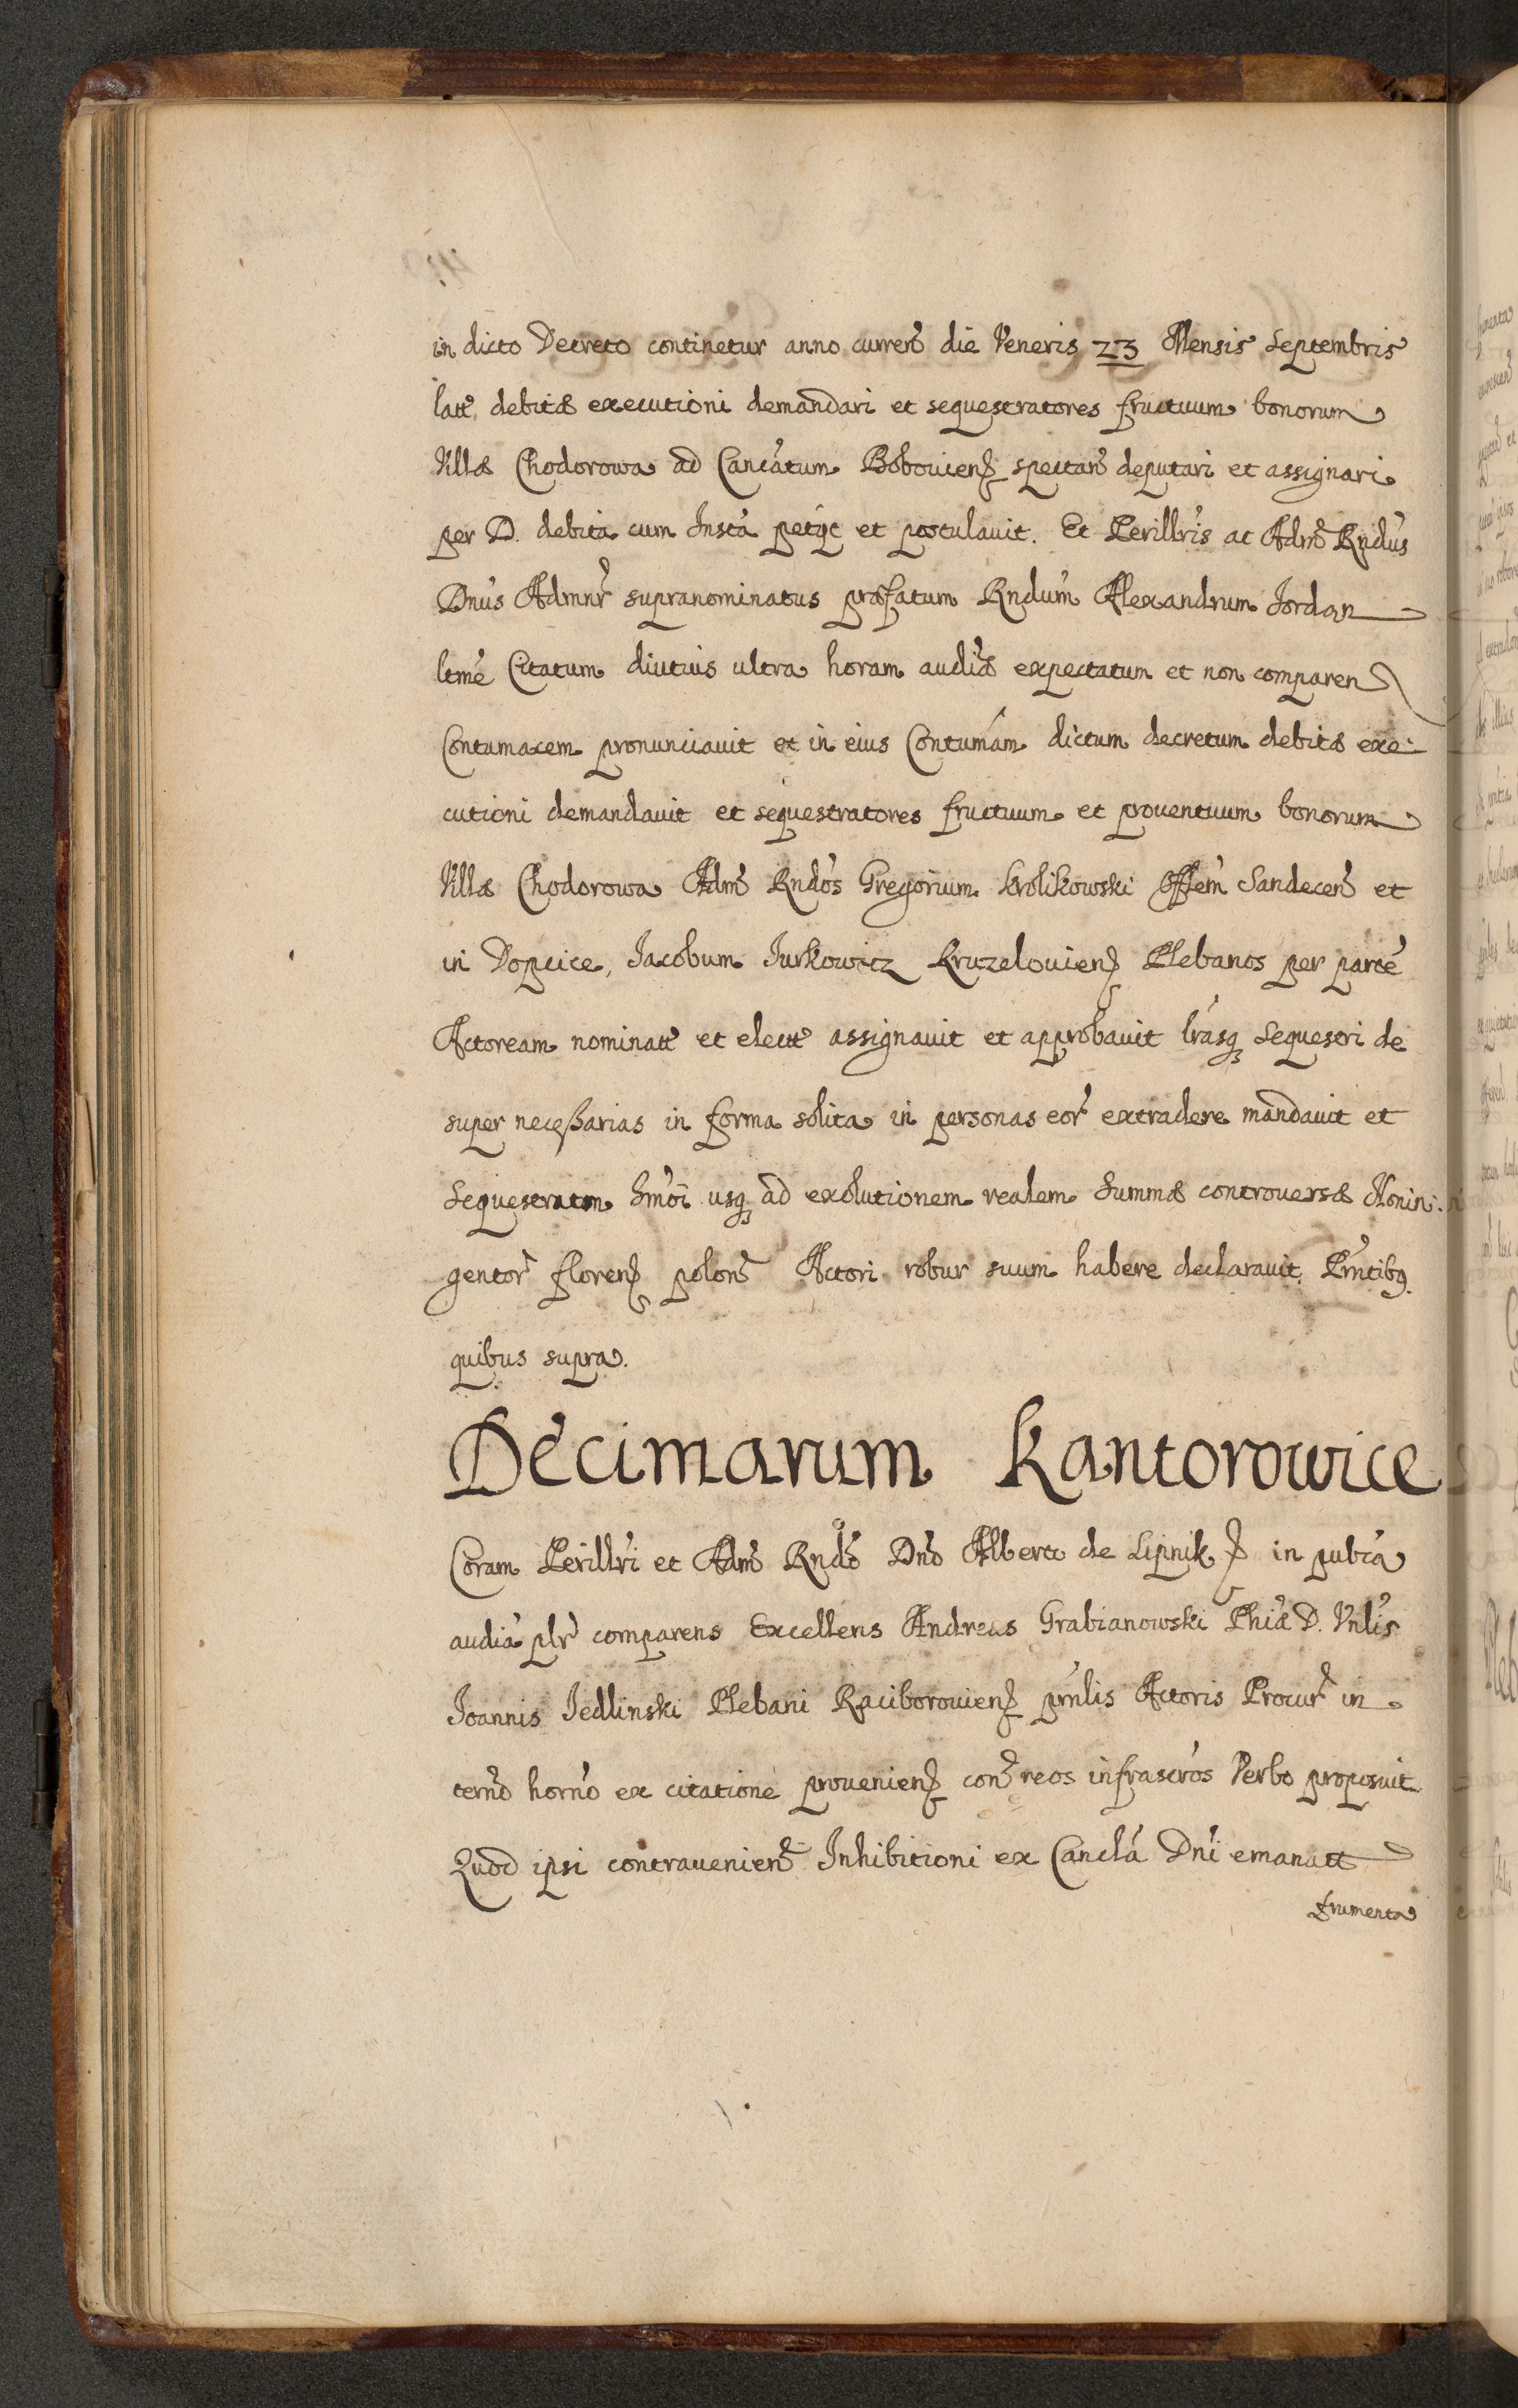 in dicto Decreto continetur anno curren̄ die Veneris 23 Mensis Septembris
latt. debitæ executioni demandari et sequestratores fructuum bonorum
Villæ Chodorowa ad Canc̄atum Bobouien̄ spectan̄ deputari et assignari
per D. debita cum Insta petijt et postulauit. Et Perillr̄is ac Adm̄ Rndūs
Dnūs Admnr̄ supranominatus præfatum Rndūm Alexandrum Jordan
ltmē Citatum diutius ultra horam audīæ expectatum et non comparen
Contumacem pronunciauit et in eius Contumām dictum decretum debitæ exe-
cutioni demandauit et sequestratores fructuum et prouentuum bonorum
Villæ Chodorowa Adm̄ Rndōs Gregorium Krolikowski Offlēm Sandecen̄ et
in Dopcice, Jacobum Jurkowicz Kruzelouien̄ Plebanos per partē
Actoream nominatt et electt assignauit et approbauit lrāsq̨ Sequestri de
super neceßarias in forma solita in personas eor̄ extradere mandauit et
Sequestratm hmōi usq̨ ad exolutionem realem Summæ controuersæ Nonin-
gentor̄ floren̄ polon̄ Actori robur suum habere declarauit. Prn̄tibq̨
quibus supra.
Decimarum Kantorowice
Coram Perillri et Adm̄ Rndō Dnō Alberto de Lipnik in publca
audīa plr̄ comparens Excellens Andreas Grabianowski Phīæ D. Vnlīs
Joannis Jedlinski Plebani Raciborouien̄ prn̄lis Actoris Procur̄ in
termō hornō ex citatione prouenien̄ con̄ reos infrascrōs Verbo proposuit
Quod ipsi contrauenien̄ Inhibitioni ex Canclā Dnī emanatt
frumenta